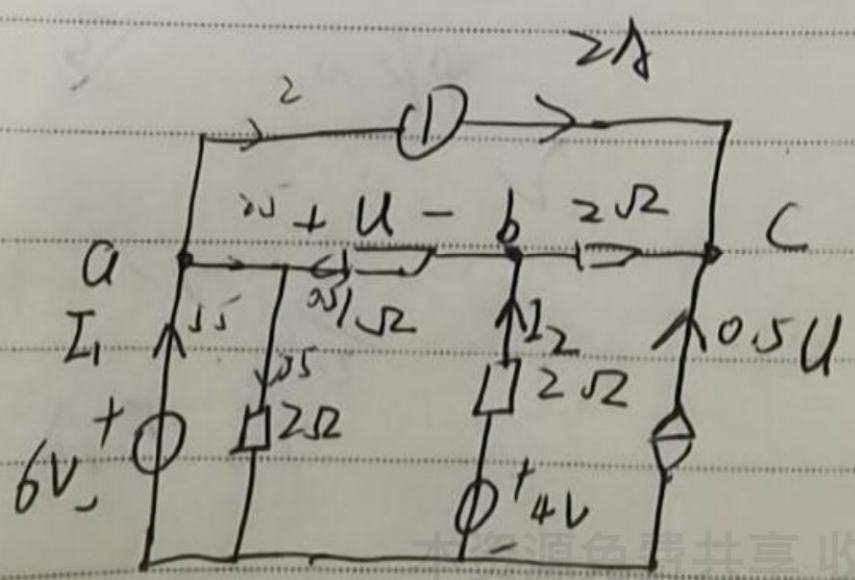 2A
2
25 + U - b 2Ω C
a
I₁ 55 05 1Ω I₂ 0.5U
25 2Ω
+ 2Ω
6V - + 4V
-
本资源免费共享 收